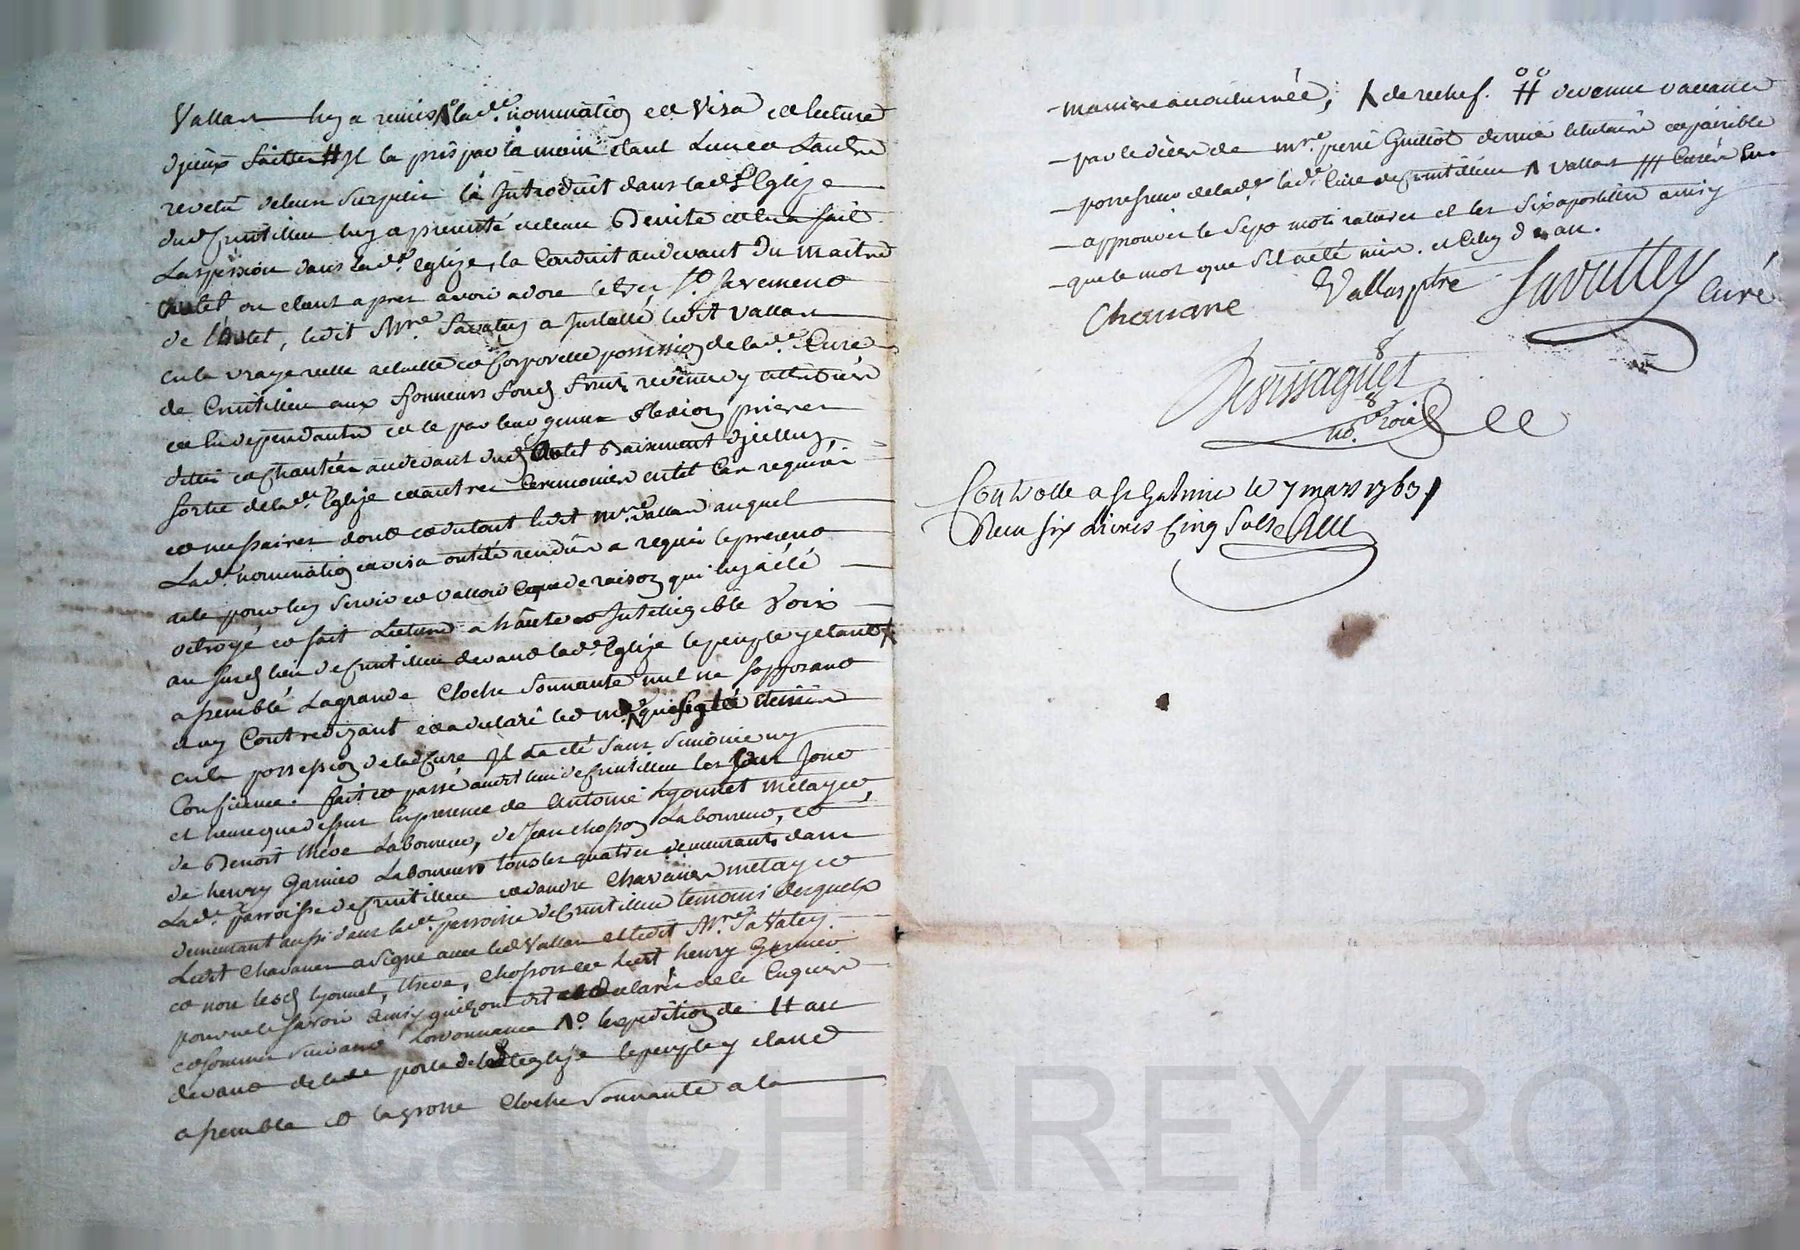 Vallas luy a remis la de. nomination et Visa et lecture
d'jceux faitte # Jl la pris par la main etant Lun et Lautre
revetu de leur Surplis la Introduit dans lade. Eglize
dud. Cruttilleu luy a presenté de leau Benite et luy a fait
Laspersion dans lade. Eglize, la Conduit audevant Du maitre
autel ou etant apres avoir adoré le tres St. Sacrement
de l'autel, ledit Mre. Savatey a Installé ledit Vallas
en la vraye reelle actuelle et Corporelle possession de lade. Cure
de Cruttilleu aux honneurs fonds fruits revenus y attribués
et en dependants et ce par
dittes et chantées audevant dud. autel Baisement d'jcelluy,
Sortie de lade. Eglize et autres Ceremonies en tel Cas requises
et necessaires dont et dutout ledit mre. Vallas auquel
Lade. nomination et visa ont été rendus a requis le present
acte pour luy servir et valloir ce que de raison qui luy a été
octroyé et fait Lecture a haute et Inteligible Voix
au susd. lieu de Cruttilleu devant lade. Eglize le peuple y etant
assemblé Lagrande Cloche Sonnante nul ne sopposant
et ny Contredizant et a declaré led. mre.
en la possession de lad. Cure Jl la été Sans Simonie ny
Confiance. fait et passé audit lieu de Cruttilleu les Jour
et heure que dessus En presence de Antoine Lyonnet metayer,
de Benoit thève Laboureur, de Jean chosson Laboureur, et
de henry Garnier Laboureur tous les quatre demeurants dans
Lade. parroisse de Cruttilleu et d'andré Chavanes metayer
demeurant aussi dans lade. parroisse de Cruttilleu temoins desquels
Ledit Chavanes a signé avec led. Vallas et ledit Mre. Savatey.
et non lesd. Lyonnet, thève, chosson et ledit henry Garnier
pour ne le savoir ainsy quils ont dit et declaré de ce Enquis
et sommés suivant Lordonnance lexpedition de # au
devant de la porte de lade. Eglize le peuple y etant
assemblé et la grosse Cloche Sonnante a la
maniere accoutumée, de rechef. # devenue vacante
par le décès de mre. pierre Guillot dernier titulaire et paisible
possesseur de lade. Cure de Cruttilleu Vallas # Curé
approuvés les Sept mots raturés et les Six apostilles ainsy
que le mot que Sil a été mis.
Chavane Vallas ptre Savattey Curé
Desissaguet
no. Roial
Controllé a St Galmier le 7 mars 1763
Receu six Livres Cinq Sols
ascal CHAREYRON